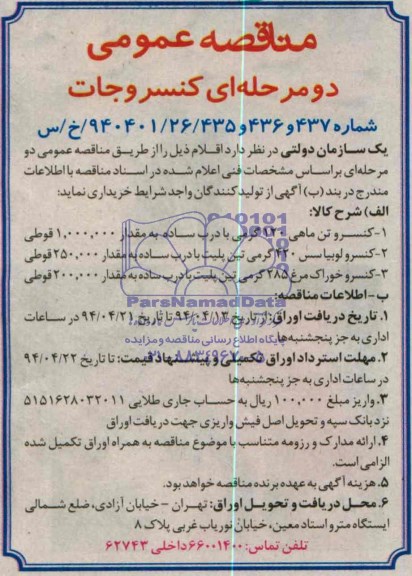 مناقصه عمومی
دو مرحله‌ای کنسروجات
شماره ۴۳۷ و ۴۳۶ و ۹۴۰۴۰۱/۲۶/۴۳۵/خ/س
یک سازمان دولتی در نظر دارد اقلام ذیل را از طریق مناقصه عمومی دو
مرحله‌ای براساس مشخصات فنی اعلام شده در اسناد مناقصه با اطلاعات
مندرج در بند (ب) آگهی از تولیدکنندگان واجد شرایط خریداری نماید:
الف) شرح کالا:
۱-کنسرو تن ماهی ۱۲۰ گرمی با درب ساده به مقدار ۱,۰۰۰,۰۰۰ قوطی
۲-کنسرو لوبیا سس ۴۲۰ گرمی تین پلیت با درب ساده به مقدار ۲۵۰,۰۰۰ قوطی
۳-کنسرو خوراک مرغ ۲۸۵ گرمی تین پلیت با درب ساده به مقدار ۲۰۰,۰۰۰ قوطی
ب-اطلاعات مناقصه:
ParsNamadData
۱. تاریخ دریافت اوراق: از تاریخ ۹۴/۰۴/۱۳ تا تاریخ ۹۴/۰۴/۲۱ در ساعات
اداری به جز پنجشنبه‌ها
پایگاه اطلاع رسانی مناقصه و مزایده
۲. مهلت استرداد اوراق تکمیلی و پیشنهاد قیمت: تا تاریخ ۹۴/۰۴/۲۲
در ساعات اداری به جز پنجشنبه‌ها
۳. واریز مبلغ ۱۰۰,۰۰۰ ریال به حساب جاری طلایی ۵۱۵۱۶۲۸۰۳۲۰۱۱
نزد بانک سپه و تحویل اصل فیش واریزی جهت دریافت اوراق
۴. ارائه مدارک و رزومه متناسب با موضوع مناقصه به همراه اوراق تکمیل شده
الزامی است.
۵. هزینه آگهی به عهده برنده مناقصه خواهد بود.
۶. محل دریافت و تحویل اوراق: تهران - خیابان آزادی، ضلع شمالی
ایستگاه مترو استاد معین، خیابان نوریاب غربی پلاک ۸
تلفن تماس: ۶۶۰۰۱۴۰۰ داخلی ۶۲۷۴۳